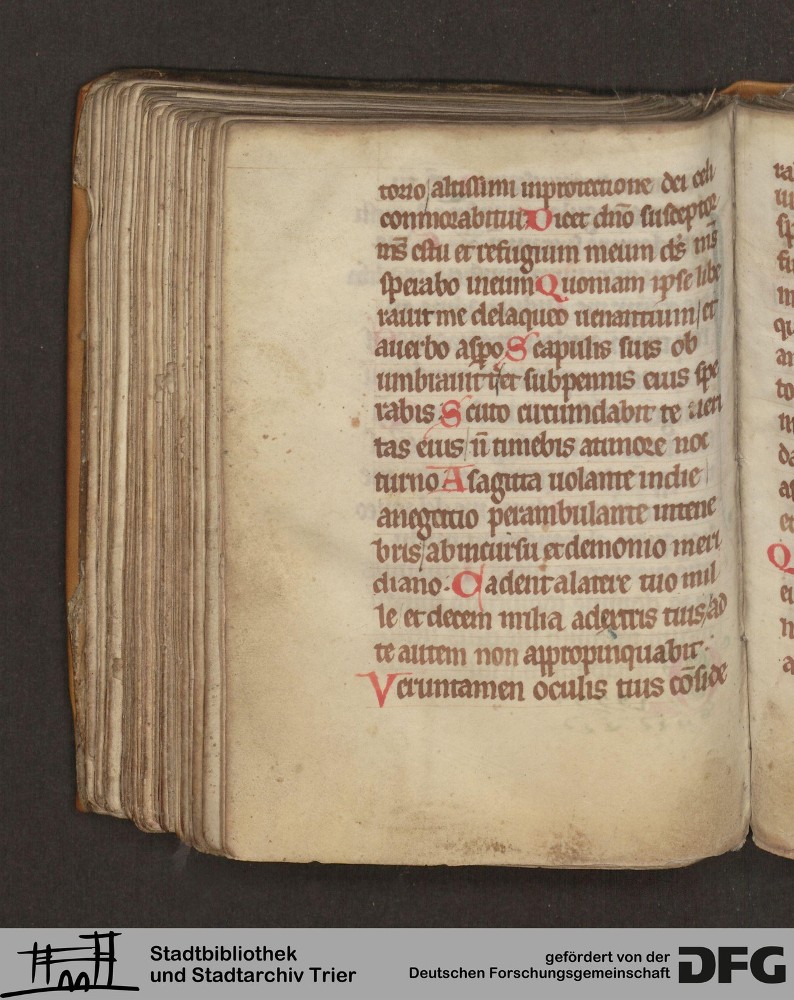 torio altissimi inprotectione dei celi
conmorabitur Dicet dn̄o susceptor
ms̄ es tu et refugium meum ds̄ ms̄
sperabo ineum Quoniam ipse libe
rauit me delaqueo uenantium et
auerbo aspo Scapulis suis ob
umbrauit t et subpennis eius spe
rabis Scuto circumdabit te ueri
tas eius n̄ timebis atimore noc
turno A sagitta uolante indie
anegotio perambulante intene
bris abincursu et demonio meri
diano. Cadent alatere tuo mil
le et decem milia adextris tuis ad
te autem non appropinquabit.
Veruntamen oculis tuis cōside
ra
Q
Stadtbibliothek
und Stadtarchiv Trier
gefördert von der
Deutschen Forschungsgemeinschaft
DFG